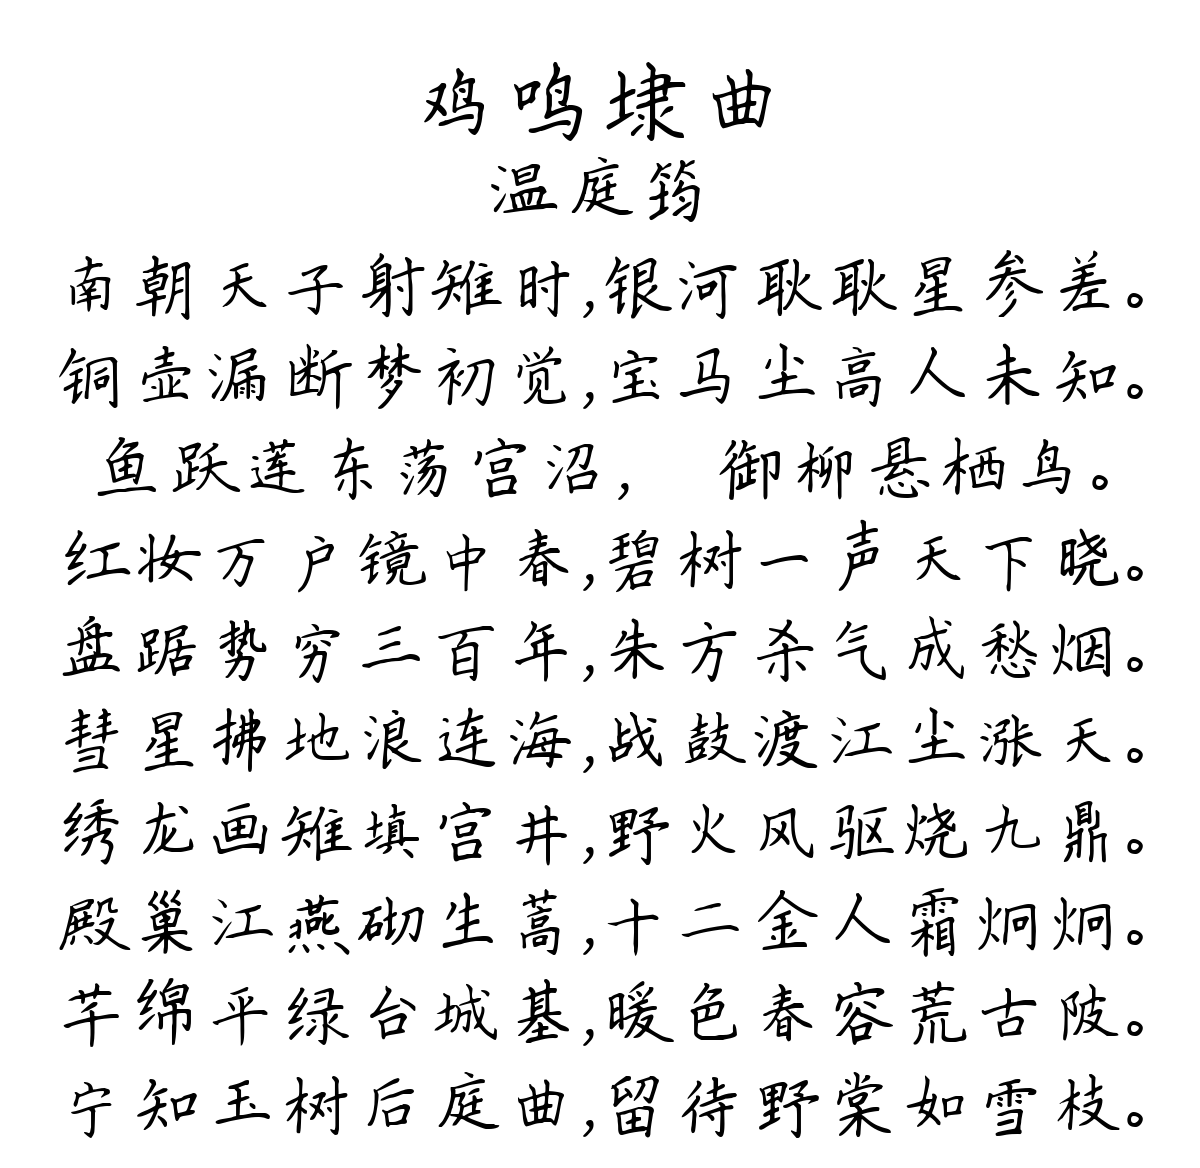 鸡鸣埭曲
温庭筠
南朝天子射雉时,银河耿耿星参差。
铜壶漏断梦初觉,宝马尘高人未知。
鱼跃莲东荡宫沼, 御柳悬栖鸟。
红妆万户镜中春,碧树一声天下晓。
盘踞势穷三百年,朱方杀气成愁烟。
彗星拂地浪连海,战鼓渡江尘涨天。
绣龙画雉填宫井,野火风驱烧九鼎。
殿巢江燕砌生蒿,十二金人霜炯炯。
芊绵平绿台城基,暖色春容荒古陂。
宁知玉树后庭曲,留待野棠如雪枝。